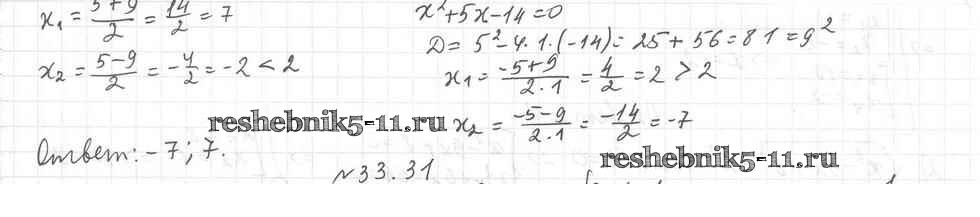 x₁ = (5+9)/2 = 14/2 = 7
x₂ = (5-9)/2 = -4/2 = -2 < 2
x²+5x-14=0
D = 5²-4·1·(-14) = 25+56=81=9²
x₁ = (-5+9)/(2·1) = 4/2 = 2 > 2
x₂ = (-5-9)/(2·1) = -14/2 = -7
reshebnik5-11.ru
Ответ: -7; 7.
reshebnik5-11.ru
№33.31